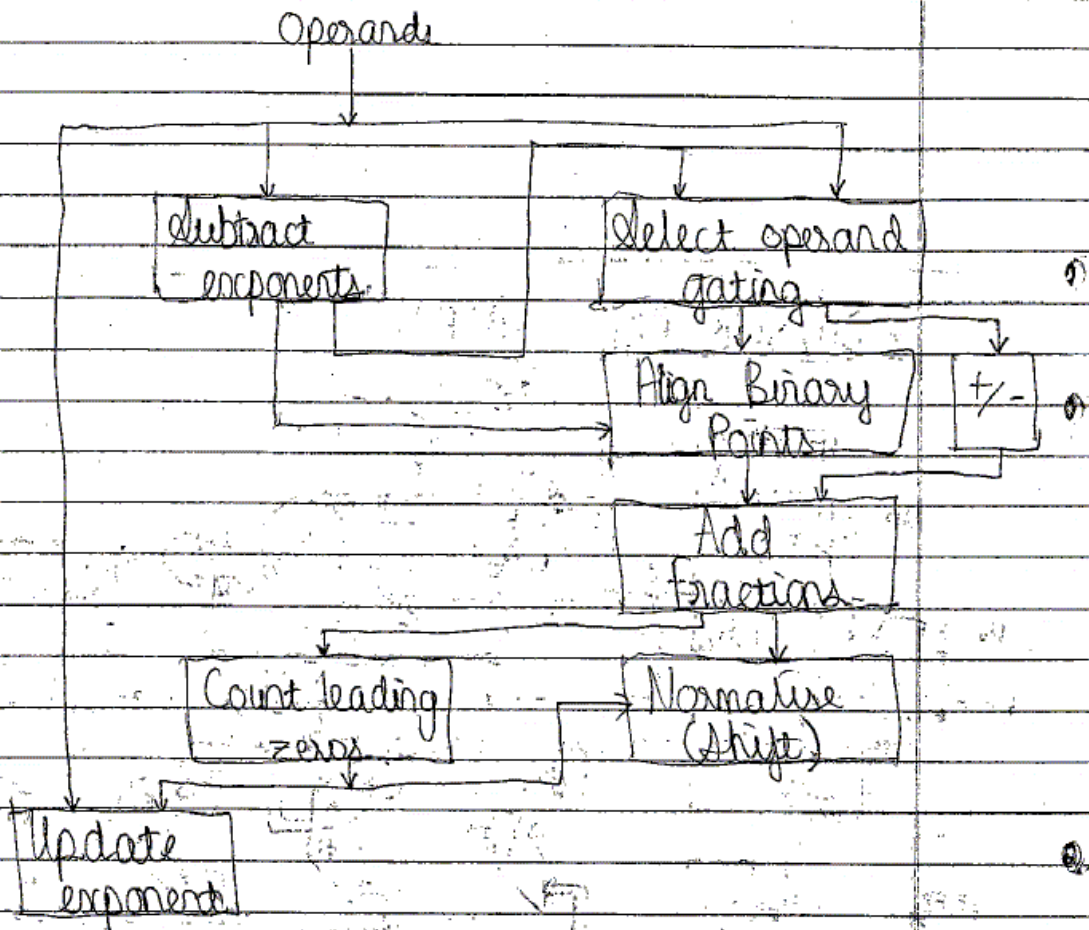 Operands
Subtract
exponents
Select operand
gating
Align Binary
Points
+/-
Add
Fractions
Count leading
zeros
Normalise
(Shift)
Update
exponent